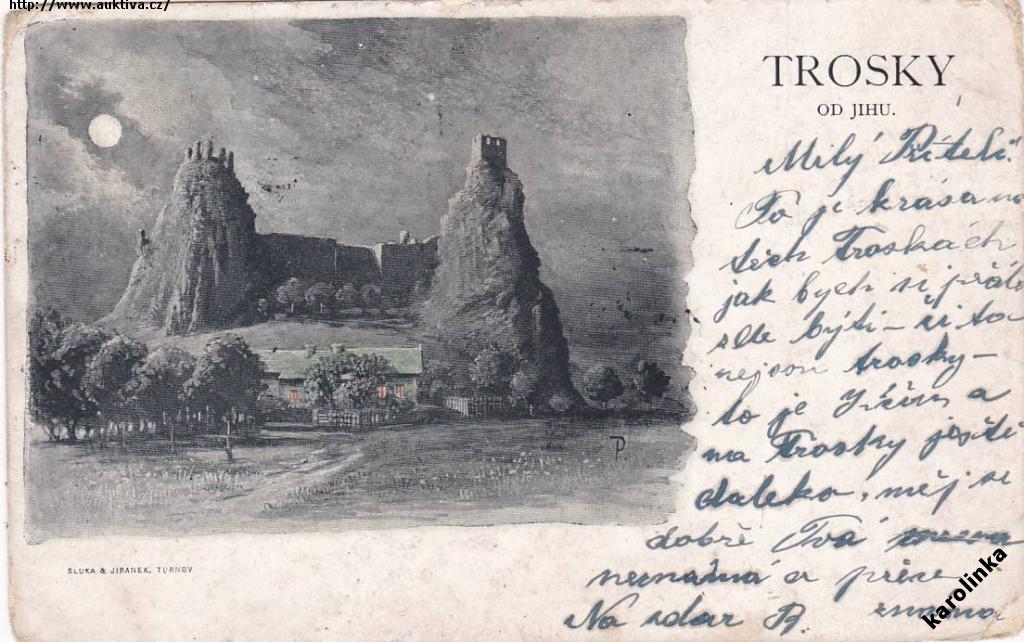 http://www.auktiva.cz/
TROSKY
OD JIHU.
Milý Příteli!
To je krása na
těch Troskách
jak bych si přál
zde býti – či to
nejsou trosky –
to je Jičín a
na Trosky ještě
daleko, měj se
dobře Tvá
neznámá a přece
Na zdar R. známa
T
P.
SLUKA & JIRANEK, TURNOV
karolinka